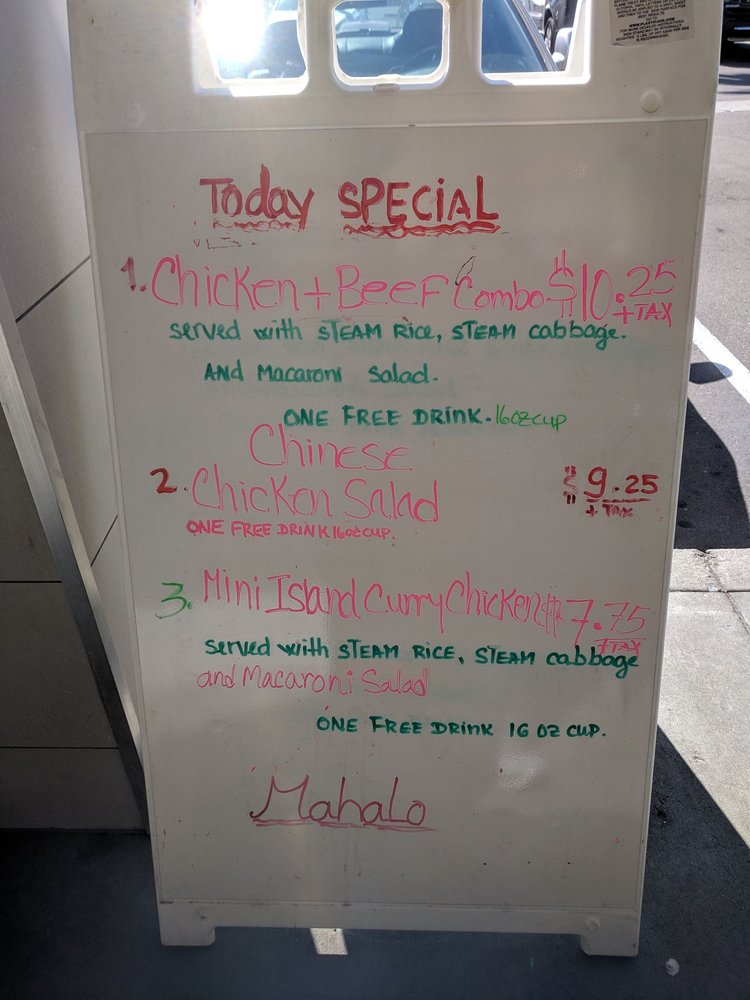 WWW.PLASTICADE.COM
Today SPECiAL
1. Chicken + Beef Combo $10.25
+ TAX
served with STEAM RICE, STEAM cabbage.
AND Macaroni Salad.
ONE FREE DRINK. 16oz CUP
Chinese
2. Chicken Salad $9.25
+ TAX
ONE FREE DRINK 16oz CUP.
3. Mini Island Curry Chicken $7.75
+ TAX
served with STEAM RICE, STEAM cabbage
and Macaroni Salad
ONE FREE DRINK 16 OZ CUP.
Mahalo